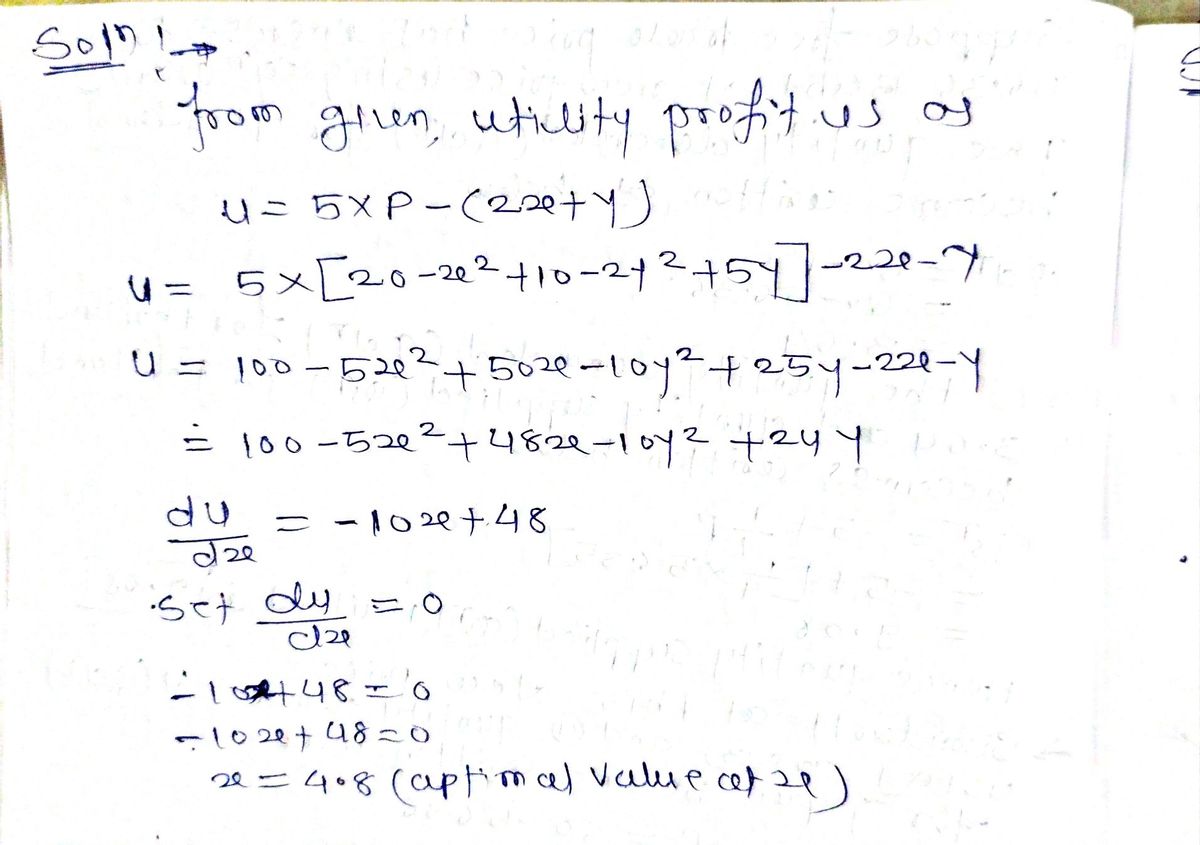 Soln :→
from given, utility profit us as
u = 5×P-(2x+y)
u = 5×[20-x²+10-2y²+5y]-2x-y
u = 100-5x²+50x-10y²+25y-2x-y
= 100-5x²+48x-10y²+24y
du/dx = -10x+48
Set du/dx = 0
-10x+48=0
-10x+48=0
x = 4.8 (optimal value at x)